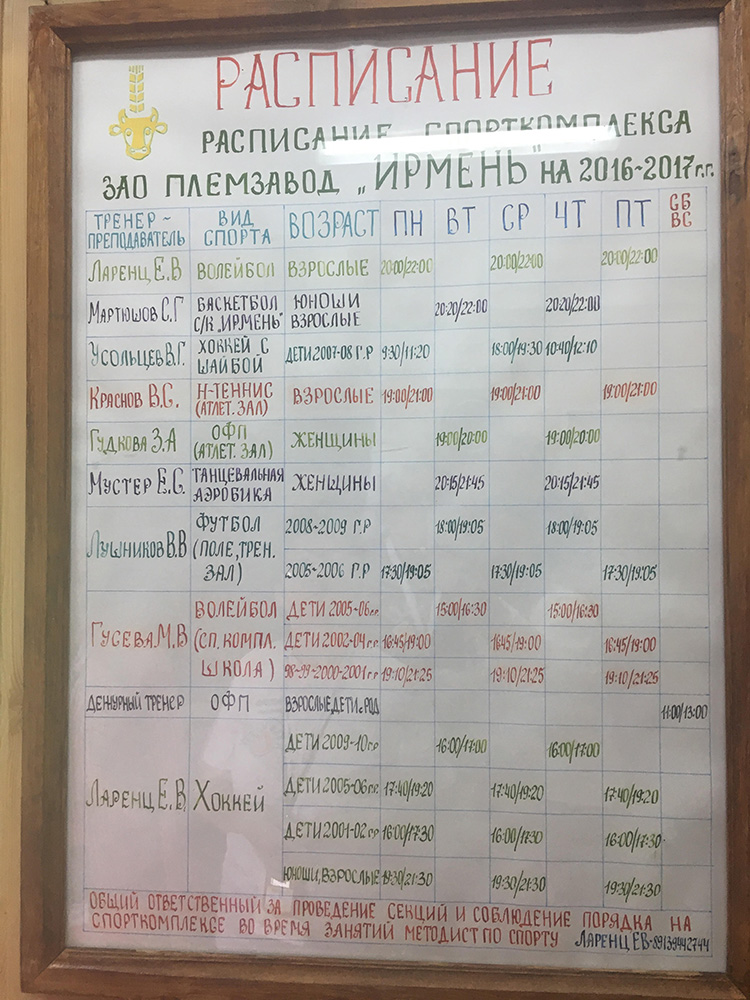 РАСПИСАНИЕ
РАСПИСАНИЕ СПОРТКОМПЛЕКСА
ЗАО ПЛЕМЗАВОД „ИРМЕНЬ" НА 2016-2017 г.г.
ТРЕНЕР- ПРЕПОДАВАТЕЛЬ ВИД СПОРТА ВОЗРАСТ ПН ВТ СР ЧТ ПТ СБ ВС
ЛАРЕНЦ Е.В ВОЛЕЙБОЛ ВЗРОСЛЫЕ 20:00/22:00 20:00/22:00 20:00/22:00
МАРТЮШОВ С.Г БАСКЕТБОЛ С/К „ИРМЕНЬ" ЮНОШИ ВЗРОСЛЫЕ 20:20/22:00 20:20/22:00
УСОЛЬЦЕВ В.Г. ХОККЕЙ С ШАЙБОЙ ДЕТИ 2007-08 Г.Р 9:30/11:20 18:00/19:30 10:40/12:10
КРАСНОВ В.С. Н-ТЕННИС (АТЛЕТ. ЗАЛ) ВЗРОСЛЫЕ 19:00/21:00 19:00/21:00 19:00/21:00
ГУДКОВА З.А ОФП (АТЛЕТ. ЗАЛ) ЖЕНЩИНЫ 19:00/20:00 19:00/20:00
МУСТЕР Е.С. ТАНЦЕВАЛЬНАЯ АЭРОБИКА ЖЕНЩИНЫ 20:15/21:45 20:15/21:45
ЛУШНИКОВ В.В ФУТБОЛ (ПОЛЕ, ТРЕН. ЗАЛ) 2008-2009 Г.Р 18:00/19:05 18:00/19:05
2005-2006 Г.Р 17:30/19:05 17:30/19:05 17:30/19:05
ГУСЕВА М.В ВОЛЕЙБОЛ (СП. КОМПЛ. ШКОЛА) ДЕТИ 2005-06 г.г. 15:00/16:30 15:00/16:30
ДЕТИ 2002-04 г.г. 16:45/19:00 16:45/19:00 16:45/19:00
98-99-2000-2001 г.г 19:10/21:25 19:10/21:25 19:10/21:25
ДЕЖУРНЫЙ ТРЕНЕР ОФП ВЗРОСЛЫЕ, ДЕТИ с РОД 11:00/13:00
ЛАРЕНЦ Е.В. ХОККЕЙ ДЕТИ 2009-10 г.р 16:00/17:00 16:00/17:00
ДЕТИ 2005-06 г.р. 17:40/19:20 17:40/19:20 17:40/19:20
ДЕТИ 2001-02 г.р 16:00/17:30 16:00/17:30 16:00/17:30
ЮНОШИ, ВЗРОСЛЫЕ 19:30/21:30 19:30/21:30 19:30/21:30
ОБЩИЙ ОТВЕТСТВЕННЫЙ ЗА ПРОВЕДЕНИЕ СЕКЦИЙ И СОБЛЮДЕНИЕ ПОРЯДКА НА
СПОРТКОМПЛЕКСЕ ВО ВРЕМЯ ЗАНЯТИЙ МЕТОДИСТ ПО СПОРТУ ЛАРЕНЦ Е.В-89139442744